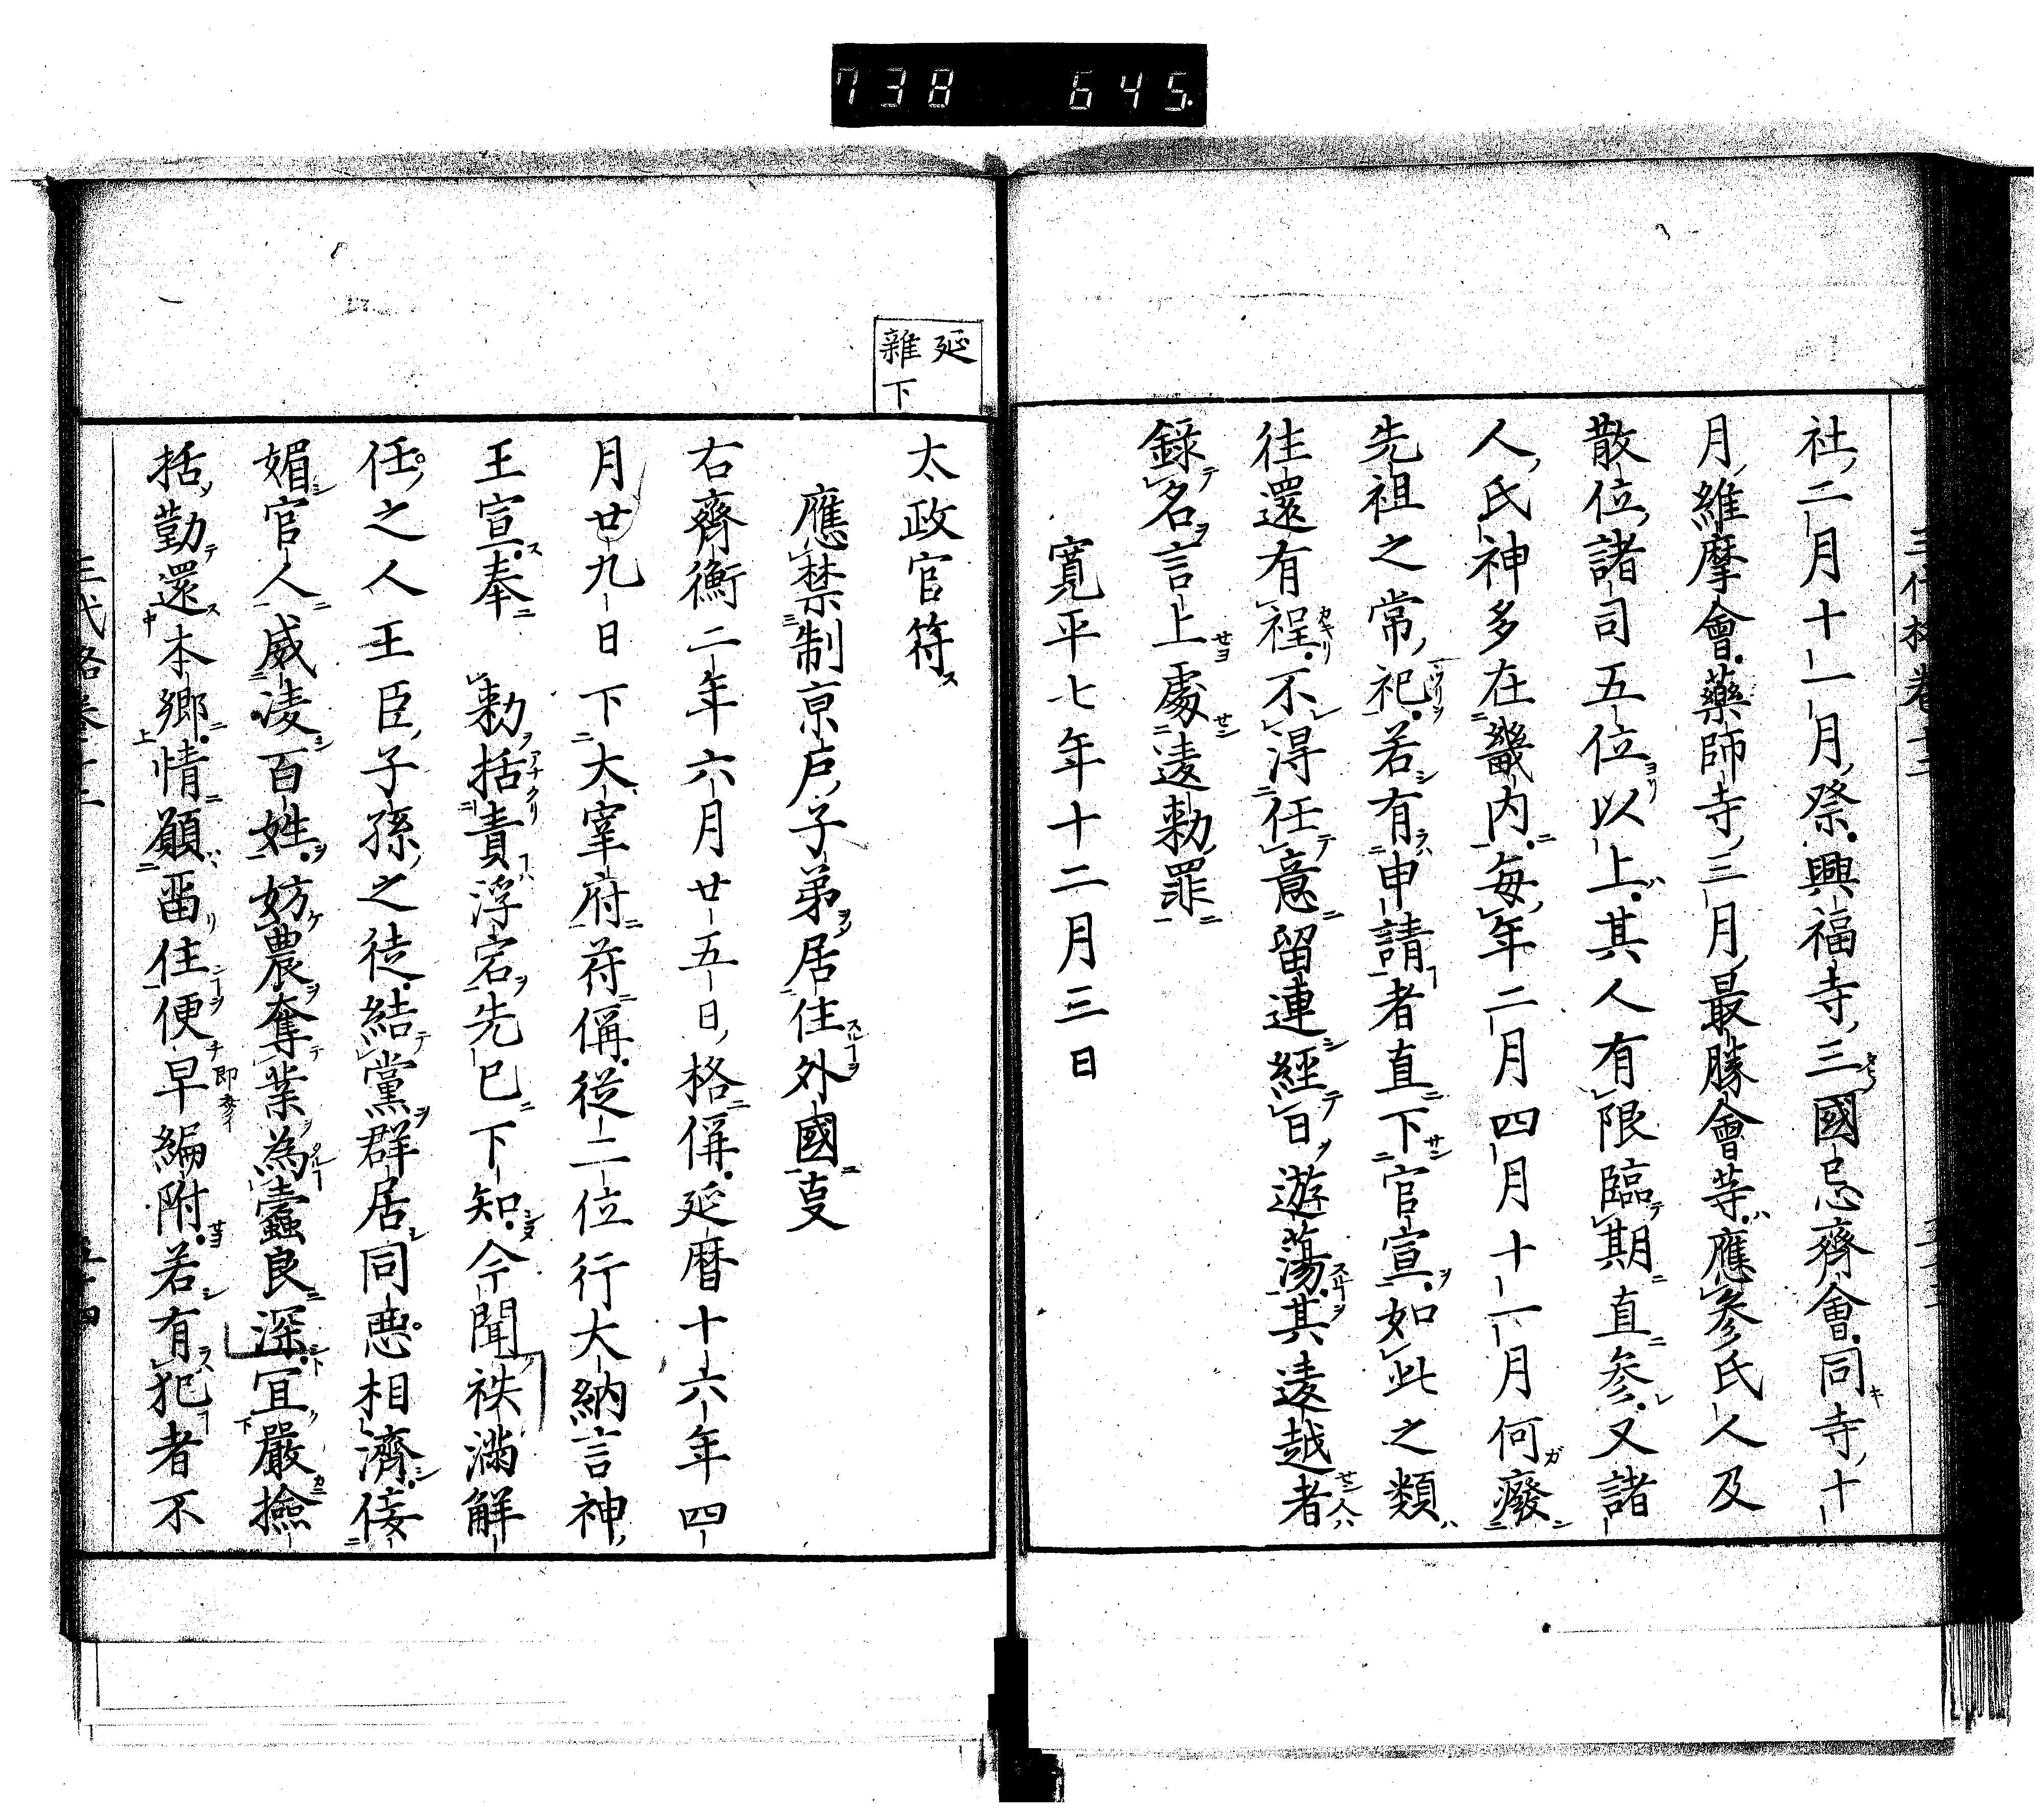 738 645
社二月十一月祭興福寺三國忌齊會同寺十
月維摩會藥師寺三月最勝會等應參氏人及
散位諸司五位以上其人有限臨期直參又諸
人氏神多在畿内每年二月四月十一月何廢
先祖之常祀若有申請者直下官宣如此之類
往還有程不得任意留連經日遊蕩其違越者
錄名言上處違勅罪
寛平七年十二月三日
延
雜下
太政官符
應禁制京戸子弟居住外國叓
右齊衡二年六月廿五日格偁延暦十六年四
月廿九日下大宰府符偁從二位行大納言神
王宣奉 勅括責浮宕先已下知今聞秩滿解
任之人王臣子孫之徒結黨群居同惡相濟佞
媚官人威凌百姓妨農奪業為蠹良深宜嚴撿
括勤還本鄉情願畱住便早編附若有犯者不